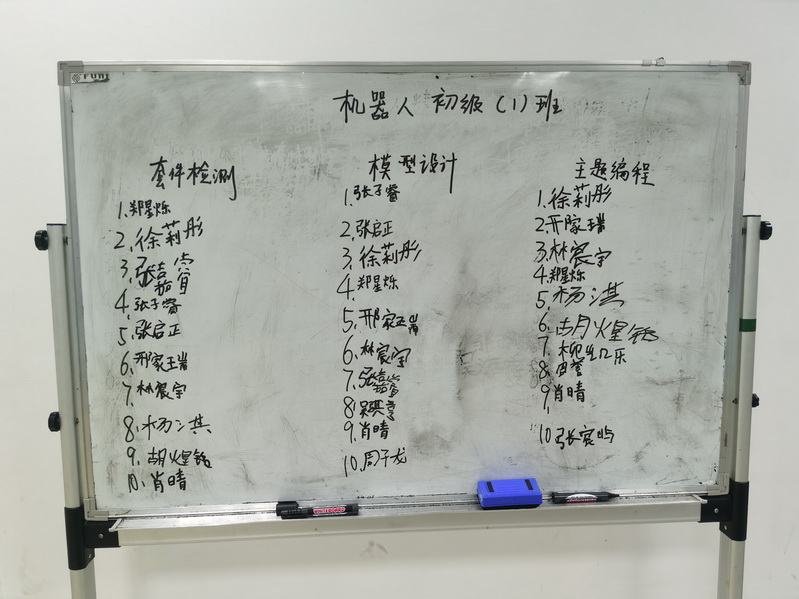 FUHI
机器人 初级（1）班
套件检测
1.郑星烁
2.徐莉彤
3.
4.张子睿
5.张启正
6.邢家瑞
7.林宸宇
8.杨淇
9.胡火星铭
10.肖晴
模型设计
1.张子睿
2.张启正
3.徐莉彤
4.郑星烁
5.邢家瑞
6.林宸宇
7.
8.吴琪亨
9.肖晴
10.周子龙
主题编程
1.徐莉彤
2.邢家瑞
3.林宸宇
4.郑星烁
5.杨淇
6.胡火星铭
7.
8.
9.肖晴
10.张宸屿
WHITEBOARD